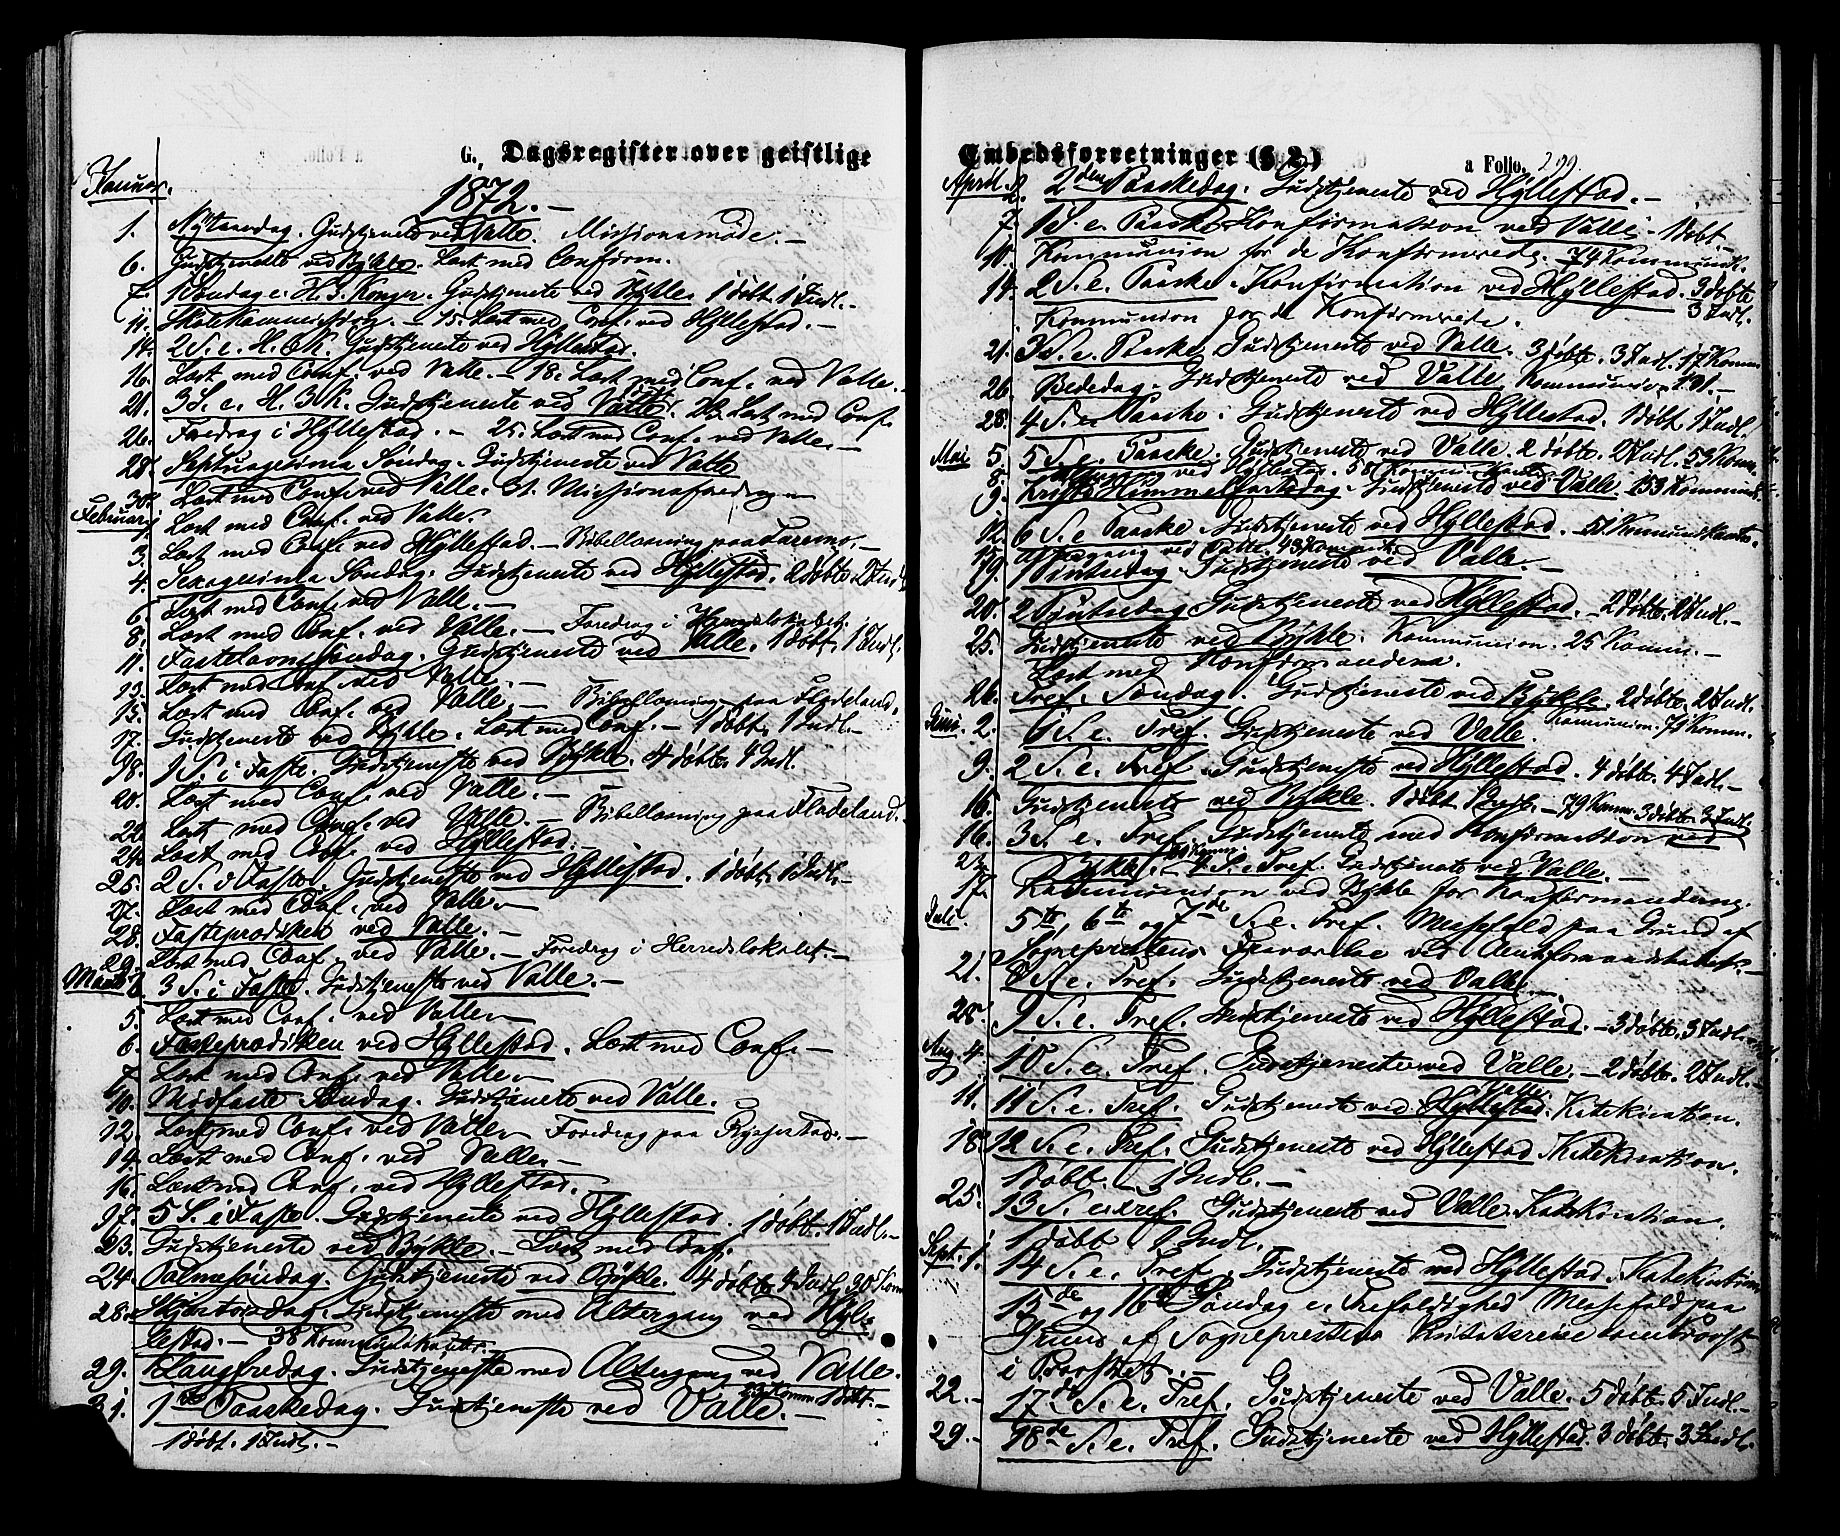 G., Dagsregister over geistlige
Januar. 1872.-
1. Nytaarsdag. Gudstjeneste ved Valle. Missionsmøde.-
6. Gudstjeneste ved Bykle. Læst med Confirm.
7. 1 Søndag e. H. 3. Konger. Gudstjeneste ved Bykle. 1 døbt. 1 Indl.-
11. Skolekommission.- 15. Læst med Conf. ved Hyllestad.-
14. 2 S. e. H. 3 K. Gudstjeneste ved Hyllestad.
16. Læst med Conf. ved Valle.- 18. Læst med Conf. ved Valle.-
21. 3 S. e. H. 3 K. Gudstjeneste ved Valle. 23. Læst med Conf.
26. Foredrag i Hyllestad.- 25. Læst med Conf. ved Valle.-
28. Septuagesima Søndag. Gudstjeneste ved Valle
30. Læst med Conf. ved Valle. 31. Missionsforedrag
Februar 1. Læst med Conf. ved Valle.
3. Læst med Conf. ved Hyllestad.- Bibellæsning paa
4. Sexagesima Søndag. Gudstjeneste ved Hyllestad. 2 døbte. 2 Indl.
6. Læst med Conf. ved Valle.-
8. Læst med Conf. ved Valle.- Foredrag i Herredslokalet.
11. Fastelavnssøndag. Gudstjeneste ved Valle. 1 døbt. 1 Indl.
13. Læst med Conf. ved Valle.-
15. Læst med Conf. ved Valle.- Bibellæsning paa Flateland.
17. Gudstjeneste ved Bykle. Læst med Conf.- 1 døbt. 1 Indl.-
18. 1 S. i Faste. Gudstjeneste ved Bykle. 4 døbte. 4 Indl.
20. Læst med Conf. ved Valle.-
Læst med Conf. ved Valle.- Bibellæsning paa Flateland.
24. Læst med Conf. ved Hyllestad.
25. 2 S. i Faste. Gudstjeneste ved Hyllestad. 1 døbt. 1 Indl.-
27. Læst med Conf. ved Valle.-
28. Fasteprædiken ved Valle.-
29. Læst med Conf. ved Valle.- Foredrag i Herredslokalet.-
Marts 3. 3 S. i Faste. Gudstjeneste ved Valle.-
5. Læst med Conf. ved Valle.-
6. Fasteprædiken ved Hyllestad. Læst med Conf.-
7. Læst med Conf. ved Valle.-
10. Midfaste Søndag. Gudstjeneste ved Valle.
12. Læst med Conf. ved Valle.- Foredrag paa Rygestad.-
14. Læst med Conf. ved Valle.-
16. Læst med Conf. ved Hyllestad.
17. 5 S. i Faste. Gudstjeneste ved Hyllestad. 1 døbt. 1 Indl.-
23. Gudstjeneste ved Bykle.- Læst med Conf.
24. Palmesøndag. Gudstjeneste ved Bykle. 4 døbte. 4 Indl. 30 Kom.
28. Skjærtorsdag. Gudstjeneste med Altergang ved Hyl-
lestad.- 38 Kommunikanter.
29. Langfredag. Gudstjeneste med Altergang ved Valle.
31. 1ste Paaskedag. Gudstjeneste ved Valle.-
1 døbt. 1 Indl.-
Embedsforretninger (§ 2.) a Folio. 299.
April 2. 2den Paaskedag. Gudstjeneste ved Hyllestad.-
7. 1 S. e. Paaske. Konfirmation ved Valle. 1 døbt.-
10. Kommunion for de Konfirmerede. 74 Kommunik.
14. 2 S. e. Paaske. Konfirmation ved Hyllestad. 3 døbte
Kommunion for de Konfirmerede. 3 Indl.
21. 3 S. e. Paaske. Gudstjeneste ved Valle. 3 døbte. 3 Indl. 17 Komm
26. Bededag. Gudstjeneste ved Valle. Kommunion
28. 4 S. e. Paaske. Gudstjeneste ved Hyllestad. 1 døbt. 1 Indl.
Mai 5. 5 S. e. Paaske. Gudstjeneste ved Valle. 2 døbte. 2 Indl. 53 Komm.
8. Altergang ved Hyllestad. 58 Kommunikanter
9. Kristi Himmelfartsdag. Gudstjeneste ved Valle. 153 Kommunik.
12. 6 S. e. Paaske. Gudstjeneste ved Hyllestad.- 51 Kommunikanter.
Altergang ved Valle. 43 Kommunik.
19. 1 Pintsedag. Gudstjeneste ved Valle.-
20. 2 Pintsedag. Gudstjeneste ved Hyllestad.- 2 døbte. 2 Indl.-
25. Gudstjeneste ved Bykle. Kommunion. 25 Komm.-
Læst med Konfirmanderne.
26. Tref. Søndag. Gudstjeneste ved Bykle. 2 døbte. 2 Indl.
Juni 2. 1 S. e. Tref. Gudstjeneste ved Valle. Kommunion. 71 Komm.
9. 2 S. e. Tref. Gudstjeneste ved Hyllestad. 4 døbte. 4 Indl.-
15. Gudstjeneste ved Bykle. 1 døbt. 1 Indl.- 79 Komm. 3 døbte. 3 Indl.
16. 3 S. e. Tref. Gudstjeneste med Konfirmation ved
23. Bykle.- 4 S. e. Tref. Gudstjeneste ved Valle.-
17. Kommunion ved Bykle for Konfirmanderne.
Juli 5te, 6te og 7de S. e. Tref. Messefald paa Grund af
Sognepræstens Fravær
21. 8 S. e. Tref. Gudstjeneste ved Valle.-
28. 9 S. e. Tref. Gudstjeneste ved Hyllestad.- 3 døbte. 3 Indl.-
Aug. 4. 10 S. e. Tref. Gudstjeneste ved Valle.- 2 døbte. 2 Indl.-
11. 11 S. e. Tref. Gudstjeneste ved Hyllestad Valle. Katekisation.
18. 12 S. e. Tref. Gudstjeneste ved Hyllestad Katekisation.
1 døbt.- 1 Indl.-
25. 13 S. e. Tref. Gudstjeneste ved Valle. Katekisation.
1 døbt. 1 Indl.-
Sept. 1. 14 S. e. Tref. Gudstjeneste ved Hyllestad. Katekisation
15de og 16de Søndag e. Trefoldighed Messefald paa
Grund af Sognepræstens
i
22. 17de S. e. Tref. Gudstjeneste ved Valle. 5 døbte. 5 Indl.-
29. 18de S. e. Tref. Gudstjeneste ved Hyllestad. 3 døbte. 3 Indl.